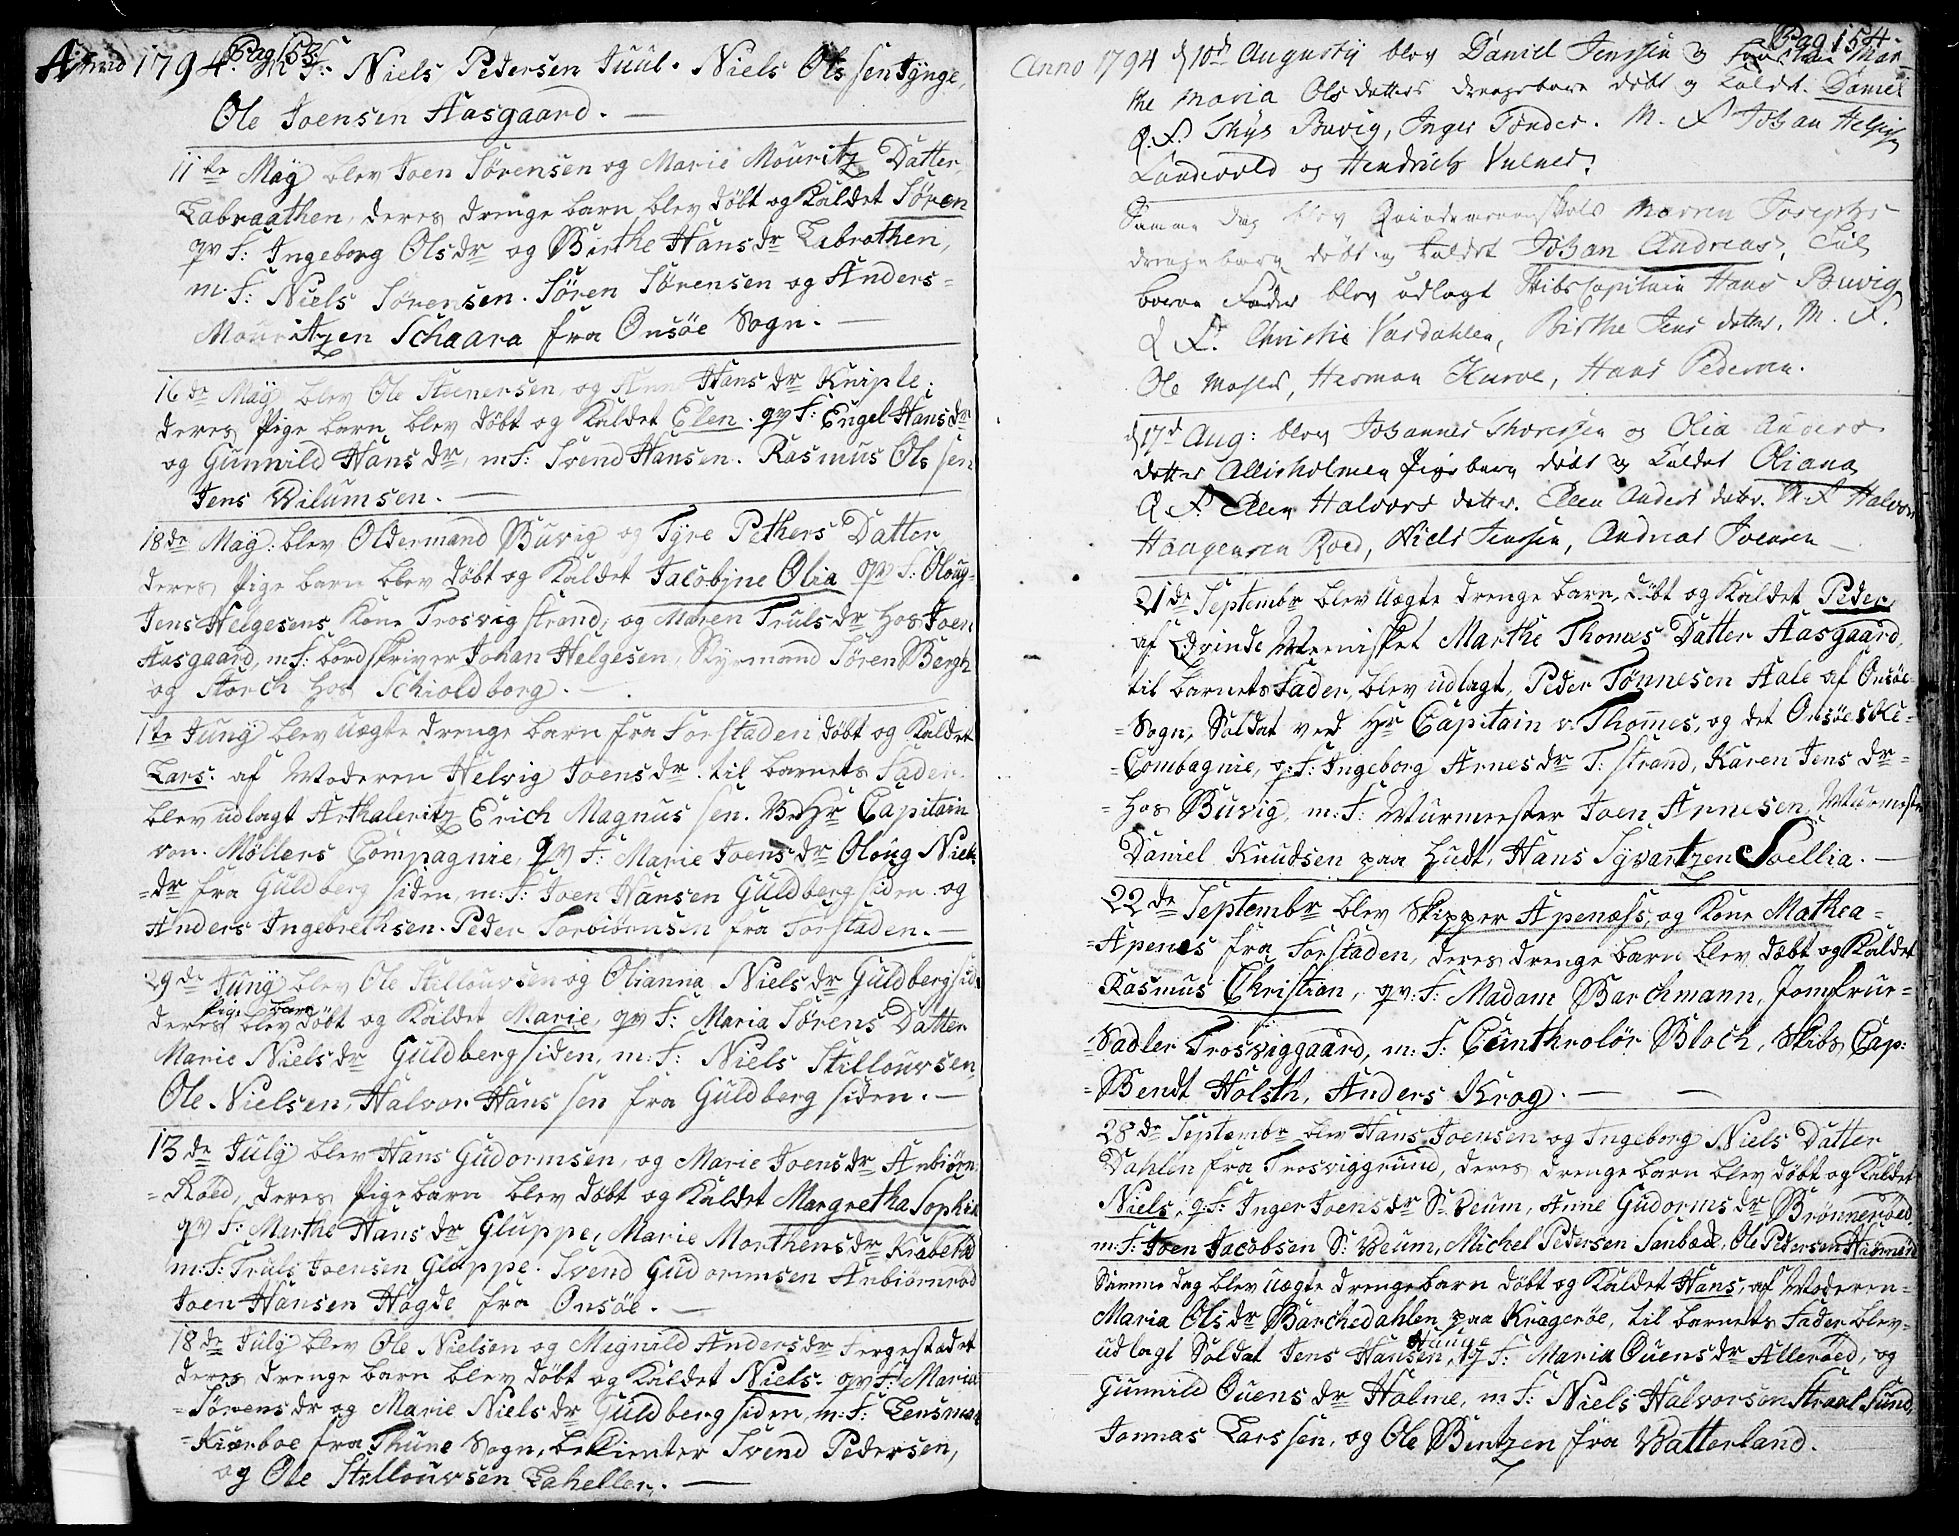 Anno 1794. Pag 153.
m: F: Niels Pedersen Juul. Niels Ols sen Tynge,
Ole Joensen Aasgaard. —
11te Maÿ blev Joen Sørensen og Marie Mouritz Datter,
Labraathen, deres drenge barn blev døbt og Kaldet Søren
qv F: Ingeborg Ols dr og Birthe Hans dr Labrathen,
m: F: Niels Sørensen. Søren Sørensen og Anders =
Mouritzen Schaara fra Onsøe Sogn. —
16de Maÿ blev Ole Stenersen, og Anne Hans dr Kniple.
deres Pige barn blev døbt og Kaldet Elen. qv F: Engel Hans dr
og Gunnild Hans dr, m F: Svend Hansen. Rasmus Ols sen
Jens Wilumsen. —
18de Maÿ: blev Oldermand Buvig og Tyre Pethers Datter
deres Pige barn blev døbt og Kaldet Jacobjne Olia qv F: Oloug-
Jens Helgesens Kone Trosvig strand, og Maren Truls dr hos Joen
Aasgaard, m F: bordskriver Johan Helgesen, Styrmand Søren Bergh
og Storch hos Schioldborg. —
1te Junÿ blev Uægte drenge barn fra Forstaden døbt og Kaldet
Lars. af Moderen Helvig Joens dr. til barnets Fader
blev udlagt Arthaleritz Erich Magnus sen. V. Hr Capitain
von. Møllers Compagnie, qv F: Marie Joens dr Oloug Niels
= dr fra Guldberg siden, m: F: Joen Hansen Guldberg siden og
Anders Ingebrethsen. Peder Torbiørnsen fra Forstaden. —
29de Junÿ blev Ole Stillouvsen og Olianna Niels dr Guldberg sid.
deres Pige barn blev døbt og Kaldet Marie, qv F: Maria Sørens Datter
Marie Niels dr Guldberg siden, m: F: Niels Stillouvsen,
Ole Nielsen, Halvor Hans sen fra Guldberg siden. —
13de Julÿ blev Hans Gudormsen, og Marie Joens dr Anbiørn
= Røed, deres Pige barn blev døbt og Kaldet Margretha Sophia
qv F: Marthe Hans dr Gluppe, Marie Morthens dr Krabeha
m: F: Truls Joensen Gluppe. Svend Gudormsen Anbiørnrød
Joen Hansen Hogde fra Onsøe. —
18de Julÿ blev Ole Nielsen og Megnild Anders dr Fergestædet
deres drenge barn blev døbt og Kaldet Niels. qv F: Maria
= Sørens dr og Marie Niels dr Guldberg siden, m: F: Lensmand
= Kierboe fra Thune Sogn, bekienter Svend Pedersen,
og Ole Stillouvsen Laheller. —
Pag 154
Anno 1794 d 10d Augustÿ blev Daniel Jenssen og Mar-
the Maria Ols datters drengebarn døbt og kaldt. Daniel
Q. F. Thys Buvig, Inger Tønder. M. F Johan Helgesen
Landevold og Hendrich Vulner.
Samme dag blev Qvindemenneskets Marren Josephs
drengebarn døbt og kaldet Johan Andreas, til
barnes Fader blev udlagt Skibs Capitain Hans Buvig
Q F. Christie Vardahlen, Birthe Jens datter. M. F.
Ole Moses, Herman Kurve, Hans Pedersen.
d 17d Aug: blev Johannes Thoressen og Olia Anders
datter Allisholmen pigebarn døbt og kaldet Oliana
Q F. Elen Halvors datter. Elen Anders datter. M. F Halvor
Haagensen Roed, Niels Jenssen, Andreas Joensen —
21de Septembr blev Uægte drenge barn, døbt og Kaldet Peder,
af Qvinde Mennisket Marthe Thomes Datter Aasgaard,
til barnets Fader, blev udlagt, Peder Tønnesen Aale af Onsøe-
= Sogn, Soldat ved Hr Capitain v. Thomes, og det Onsøeske-
= Combagnie, q: F: Ingeborg Arnes dr T: strand, Karen Jens dr =
= hos Buvig, m: F: Murmester Joen Arnesen, Murmester
Daniel Knudsen paa Hudt, Hans Syvartzen Soellia. —
22de Septembr blev Skipper Apenæss, og Kone Mathea =
= Apenes fra Forstaden, deres drenge barn blev døbt og Kaldet
Rasmus Christian, qv: F: Madam Barchmann, Jomfrue =
= Sadler Trosviggaard, m: F: Cunthrolør Bloch, Skibs Cap:
= Bendt Holsth, Anders Krog. — —
28de Septembr blev Hans Joensen og Ingeborg Niels Datter
Dahlen fra Trosviggrund, deres drenge barn blev døbt og Kaldet
Niels, q: F: Inger Joens dr S: Veum, Anne Gudorms dr Brønnerøed,
m: F: Joen Jacobsen S: Veum, Michel Pedersen Sanbæck, Ole Pedersen
Samme dag blev Uægte drenge barn døbt og Kaldet Hans, af Moderen =
Maria Ols dr Barchedahlen paa Kragerøe, til barnets Fader blev =
udlagt Soldat Jens Hansen Hauge, q F: Maria Ouens dr Allerøed, og
Gunnild Ouens dr Holme, m: F: Niels Halvorsen Straal Sund,
Jonnas Larssen, og Ole Bentzen fra Watterland.